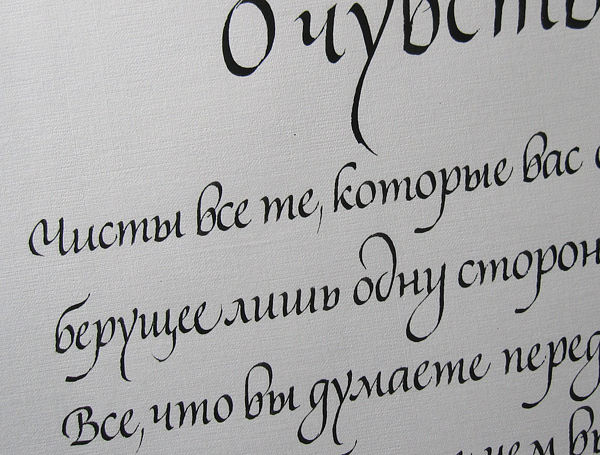 О чувств
Чисты все те, которые вас
берущее лишь одну сторон
Все, что вы думаете перед
чем